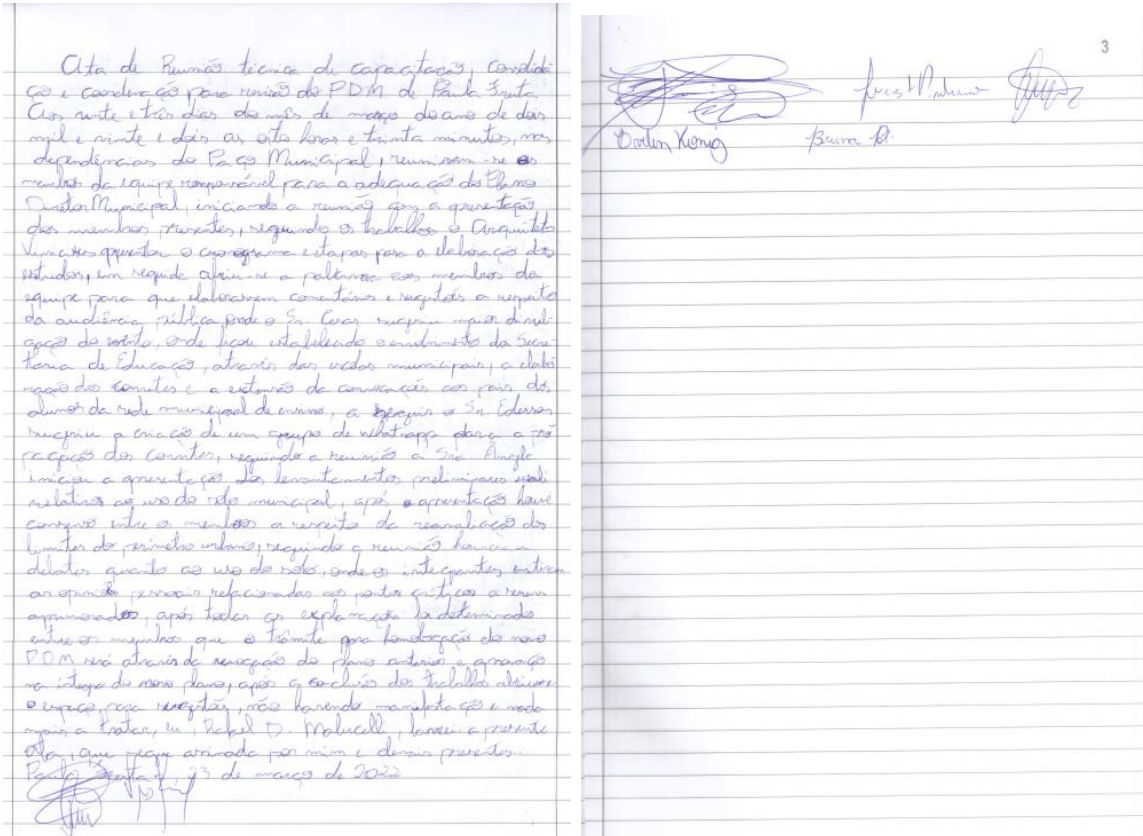 Ata de Reunião técnica de capacitação, consolida
ção e coordenação para revisão do PDM de Paula Freitas
Aos vinte e três dias do mês de março do ano de dois
mil e vinte e dois as oito horas e trinta minutos, nas
dependências do Paço Municipal, reuniram-se os
membros da equipe responsável para a adequação do Plano
Diretor Municipal, iniciando a reunião com a apresentação
dos membros presentes, seguindo os trabalhos o Arquiteto
Vinicius apresentou o cronograma e etapas para a elaboração dos
estudos, em seguida abriu-se a palavra aos membros da
equipe para que elaborassem comentários e sugestões a respeito
da audiência pública, onde o Sr. sugeriu maior divul-
gação do evento, onde ficou estabelecido o envolvimento da Secre-
taria de Educação, através das escolas municipais, a elabo
ração dos convites e a extensão da convocação aos pais dos
alunos da rede municipal de ensino, a seguir o Sr. Ederson
sugeriu a criação de um grupo de whatsapp para a pro
pagação dos convites, seguindo a reunião a Sra. Angela
iniciou a apresentação dos levantamentos preliminares
relativos ao uso do solo municipal, após a apresentação houve
consenso entre os membros a respeito da reavaliação dos
limites do perímetro urbano, seguindo a reunião houveram
debates quanto ao uso do solo, onde os integrantes emitiram
as opiniões pessoais relacionadas aos pontos críticos a serem
aprimorados, após todas as explanações foi determinado
entre os membros que o trâmite para homologação do novo
PDM será através da revogação do plano anterior e aprovação
na integra do novo plano, após a conclusão dos trabalhos abriu-se
o espaço para sugestões, não havendo manifestação e nada
mais a tratar, eu, Rafael D. Malucelli, lavrei a presente
Ata, que segue assinada por mim e demais presentes.
Paula Freitas, 23 de março de 2022
3
Darlin Konig
Bruna